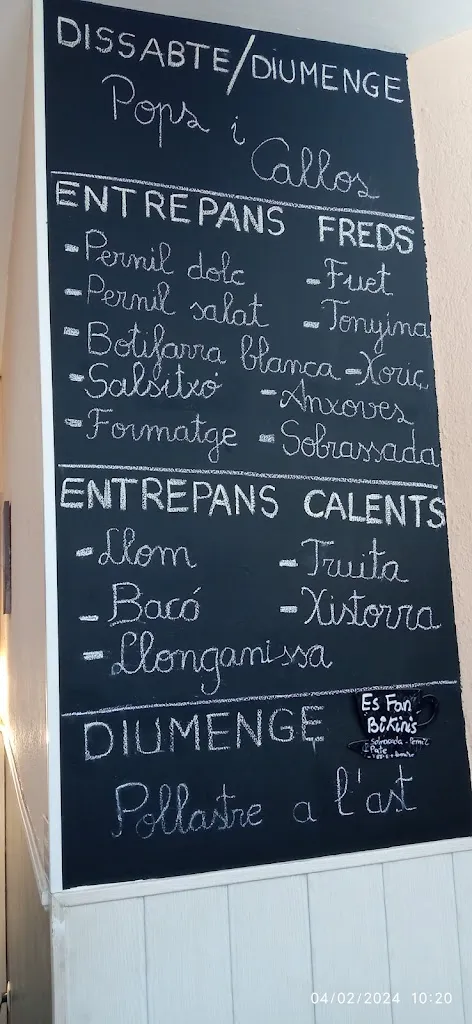 DISSABTE/DIUMENGE
Pops i
Callos
ENTREPANS FREDS
- Pernil dolç - Fuet
- Pernil salat - Tonyina
- Botifarra blanca - Xoriç
- Salsitxó - Anxoves
- Formatge - Sobrassada
ENTREPANS CALENTS
- Llom - Truita
- Bacó - Xistorra
- Llonganissa
DIUMENGE
Es Fan
Bikinis
Pate
Pollastre a l'ast
04/02/2024 10:20